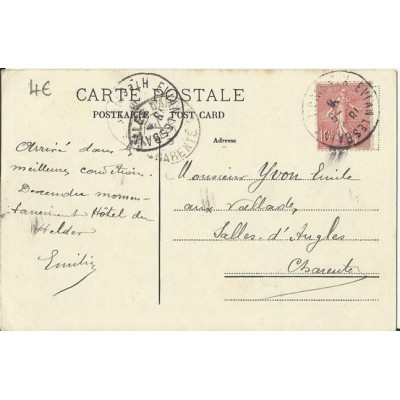 4€
CARTE POSTALE
POSTKARTE POST CARD
Adresse
EVIAN LES BAINS
CHARENTE
Arrivé dans
meilleures condition.
Descendu momen-
tanément Hôtel du
Helder
Emilie
Monsieur Yvon Emile
aux Vallade,
Salles-d'Angles
Charente